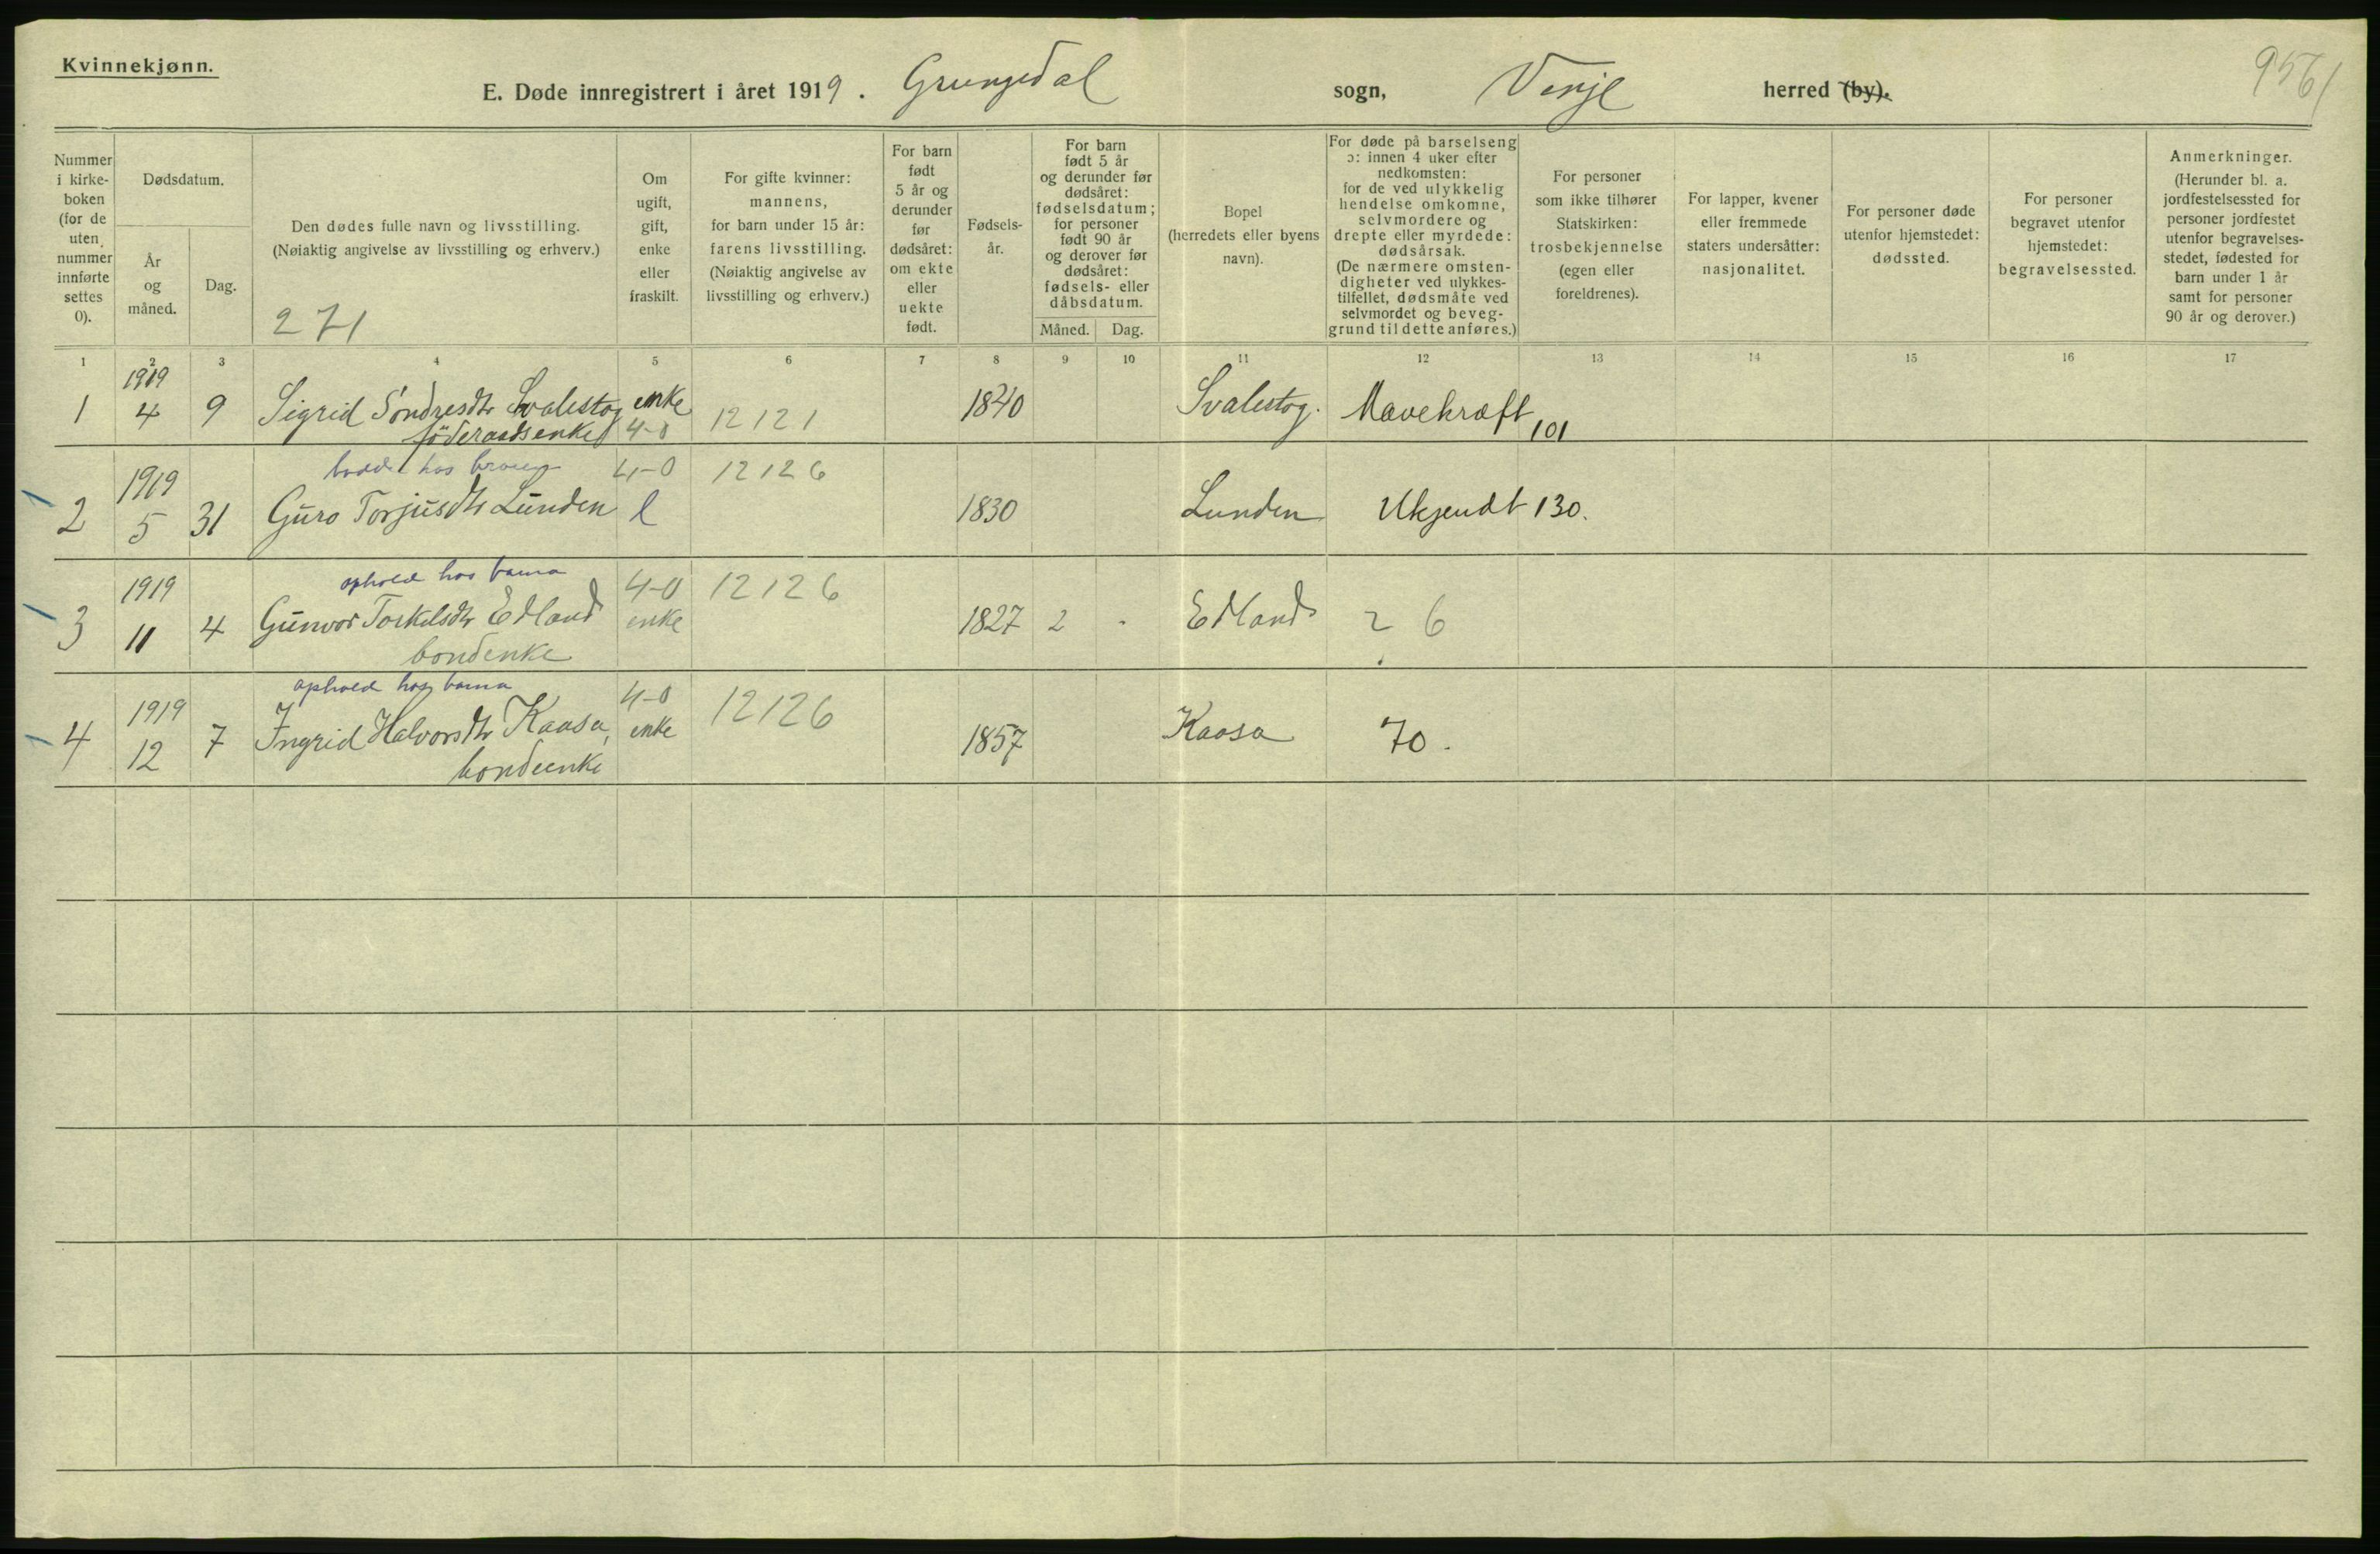 Kvinnekjønn.
E. Døde innregistrert i året 1919. Grungedal sogn, Vinje herred (by).
9561
Nummer i kirke-boken (for de uten nummer innførte settes 0).
Dødsdatum.
År og måned.
Dag.
Den dødes fulle navn og livsstilling.
(Nøiaktig angivelse av livsstilling og erhverv.)
271
Om ugift, gift, enke eller fraskilt.
For gifte kvinner: mannens, for barn under 15 år: farens livsstilling. (Nøiaktig angivelse av livsstilling og erhverv.)
For barn født 5 år og derunder før dødsåret: om ekte eller uekte født.
Fødsels-år.
For barn født 5 år og derunder før dødsåret: fødselsdatum; for personer født 90 år og derover før dødsåret: fødsels- eller dåbsdatum.
Måned. Dag.
Bopel (herredets eller byens navn).
For døde på barselseng ɔ: innen 4 uker efter nedkomsten: for de ved ulykkelig hendelse omkomne, selvmordere og drepte eller myrdede: dødsårsak. (De nærmere omsten-digheter ved ulykkes-tilfellet, dødsmåte ved selvmordet og beveg-grund til dette anføres.)
For personer som ikke tilhører Statskirken: trosbekjennelse (egen eller foreldrenes).
For lapper, kvener eller fremmede staters undersåtter: nasjonalitet.
For personer døde utenfor hjemstedet: dødssted.
For personer begravet utenfor hjemstedet: begravelsessted.
Anmerkninger. (Herunder bl. a. jordfestelsessted for personer jordfestet utenfor begravelses-stedet, fødested for barn under 1 år samt for personer 90 år og derover.)
1 2 3 4 5 6 7 8 9 10 11 12 13 14 15 16 17
1919
1 4 9 Sigrid Sondresdtr Svalestog enke 12121 1840 Svalestog. Mavekræft 101
föderaadsenke 4-0
bodde hos 4-0 12126
1919
2 5 31 Guro Torjusdtr Lunden l 1830 Lunden Ukjendt 130.
ophold hos barna 4-0 12126
1919
3 11 4 Gunvor Torkelsdtr Edland enke 1827 2 - Edland 2 6
bondenke
ophold hos barna 4-0 12126
1919
4 12 7 Ingrid Halvorsdtr Kaasa, enke 1857 Kaasa 70.
bondeenke